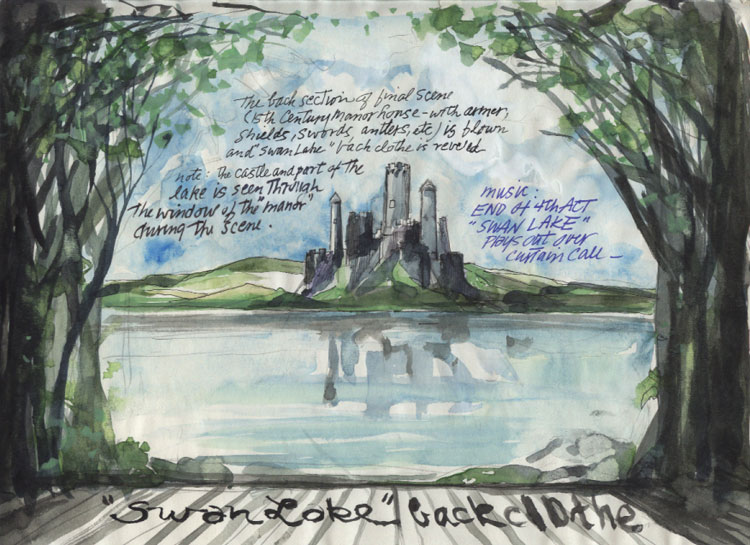 The back section of final scene
(15th Century Manor house - with armer,
shields, swords, antlers, etc) is flown
and "swan Lake" back clothe is reveled
note: the castle and part of the
lake is seen Through
The window of the "manor"
during The scene.
music:
END of 4th ACT
"SWAN LAKE"
Plays out over
curtain call -
"Swan Lake" back clothe